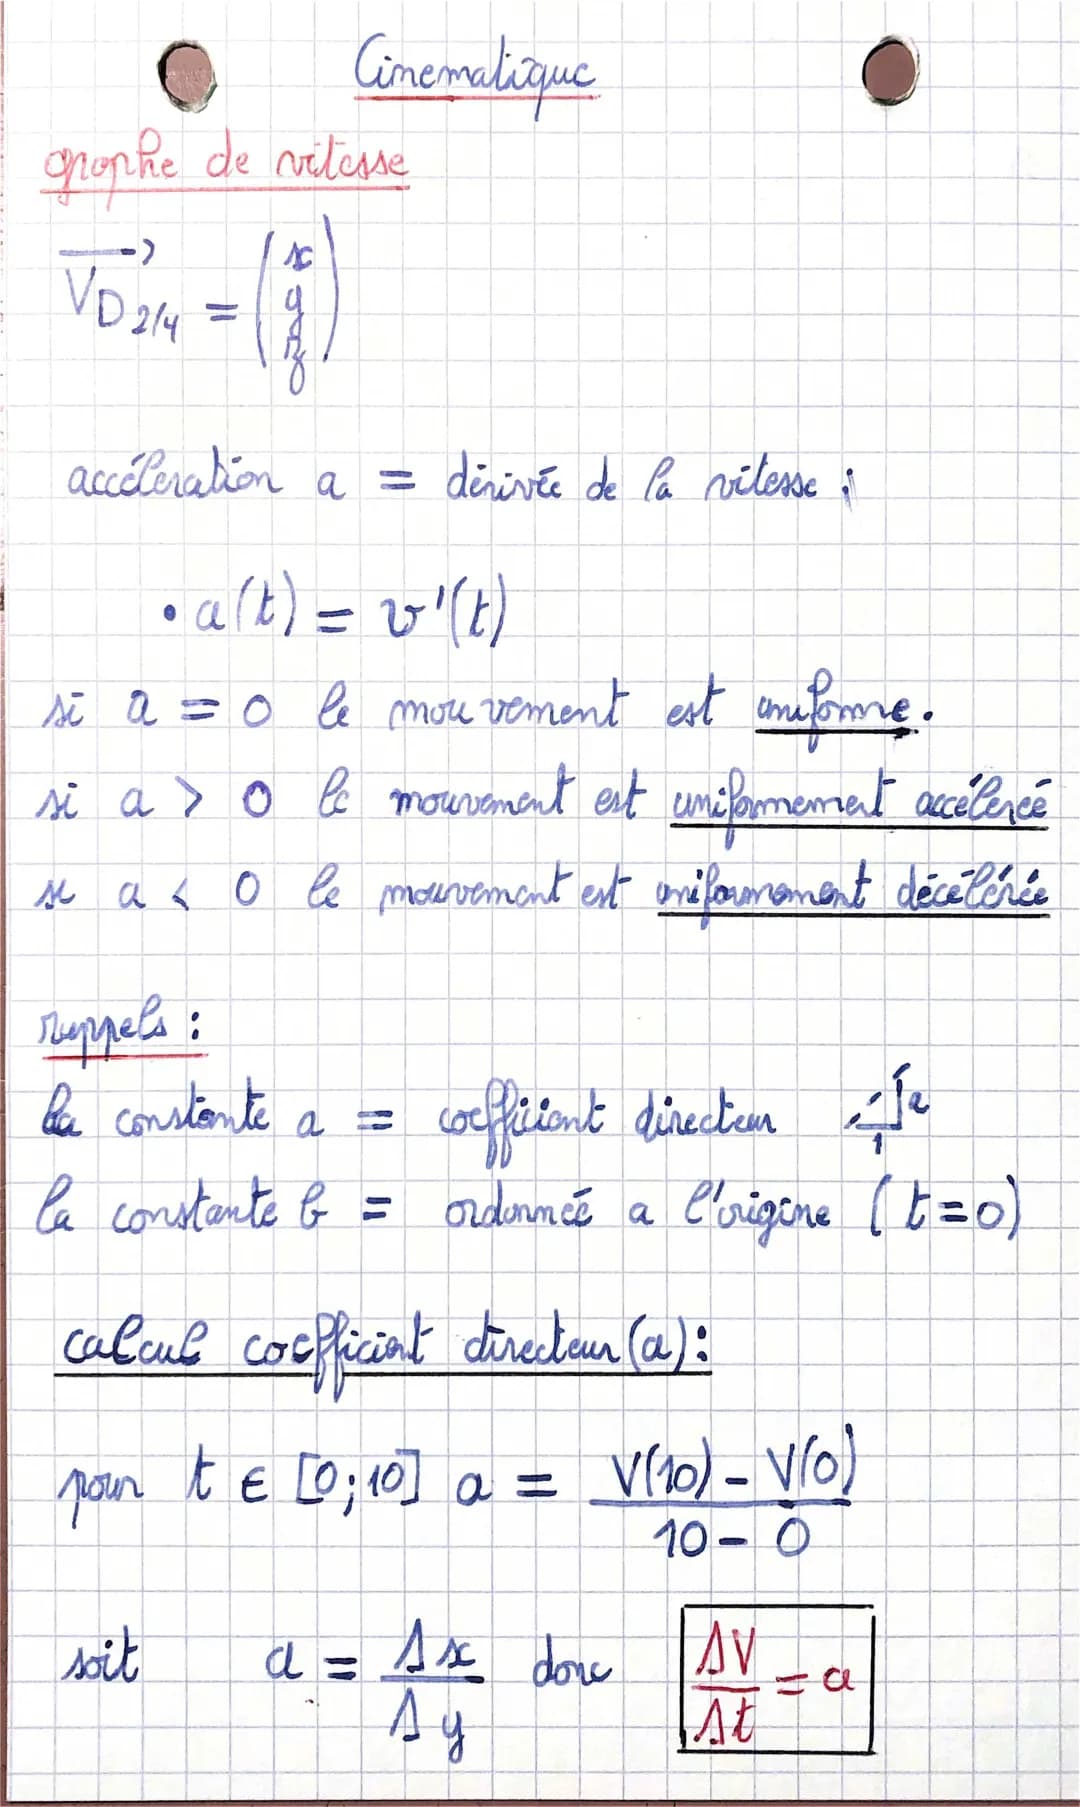 Cinematique
graphe de vitesse
$\overrightarrow{V_{D\,2/4}} = \begin{pmatrix} x \\ y \\ z \end{pmatrix}$
accéleration a = dérivée de la vitesse :
• a(t) = v'(t)
si a = 0 le mouvement est uniforme.
si a > 0 le mouvement est uniformement accéleréé
si a < 0 le mouvement est uniformement décélérée
rappels :
la constante a = coefficient directeur a 1
la constante b = ordonnéé a l'origine ( t = 0 )
calcul coefficient directeur (a) :
pour t ∈ [0; 10] a = $\frac{V(10) - V(0)}{10 - 0}$
soit a = $\frac{\Delta x}{\Delta y}$ donc $\frac{\Delta V}{\Delta t} = a$